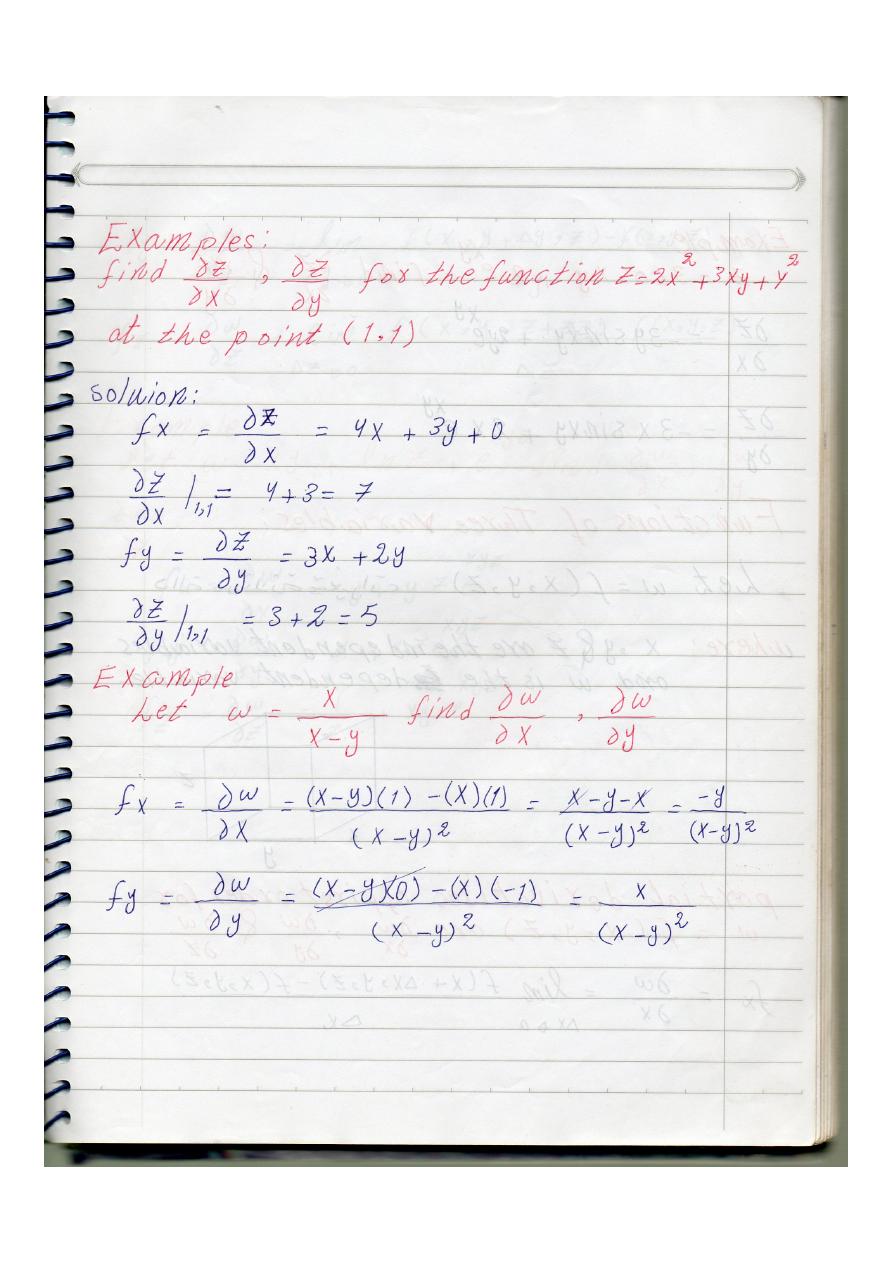 Examples:
find ∂z/∂x , ∂z/∂y for the function z=2x²+3xy+y²
at the point (1,1)
soluion:
fx = ∂z/∂x = 4x + 3y + 0
∂z/∂x |1,1 = 4+3 = 7
fy = ∂z/∂y = 3x + 2y
∂z/∂y |1,1 = 3+2 = 5
Example
Let w = x/(x-y) find ∂w/∂x , ∂w/∂y
fx = ∂w/∂x = ((x-y)(1) - (x)(1))/(x-y)² = (x-y-x)/(x-y)² = -y/(x-y)²
fy = ∂w/∂y = ((x-y)(0) - (x)(-1))/(x-y)² = x/(x-y)²